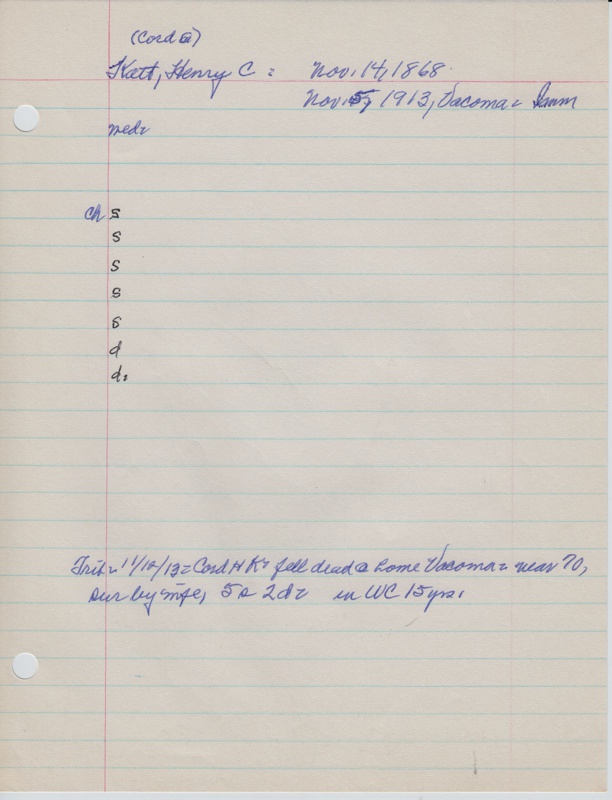 (Cord)
Katt, Henry C : Nov. 14, 1868
Nov. 5, 1913, Vacoma = Imm
med=
ch s
s
s
s
s
d
d=
Trib = 11/12/13 = Cord H K = fell dead @ home Vacoma = near 70,
sur by wife, 5 s 2 d = in WC 15 yrs.